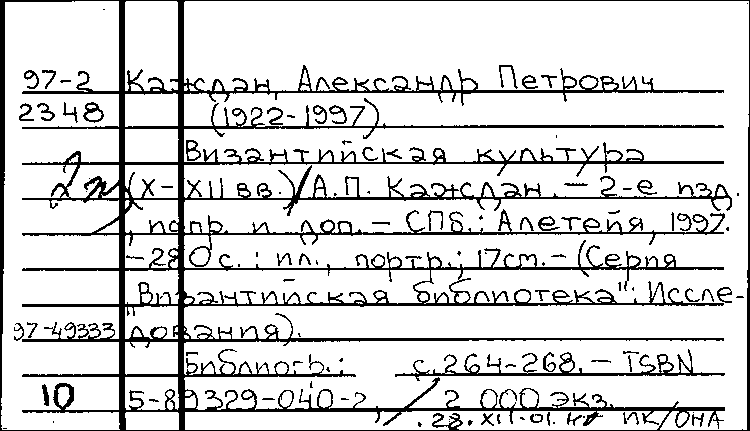 97-2 Каждан, Александр Петрович
2348 (1922-1997).
Византийская культура
2 (X-XII вв.) / А.П. Каждан. - 2-е изд.
, испр. и доп. - СПб.: Алетейя, 1997.
- 280 с.: ил., портр.; 17 cm. - (Серия
"Византийская библиотека": Иссле-
97-49333 дования).
Библиогр.: с. 264-268. - ISBN
10 5-89329-040-2, / 2 000 экз.
ПК/ОНА